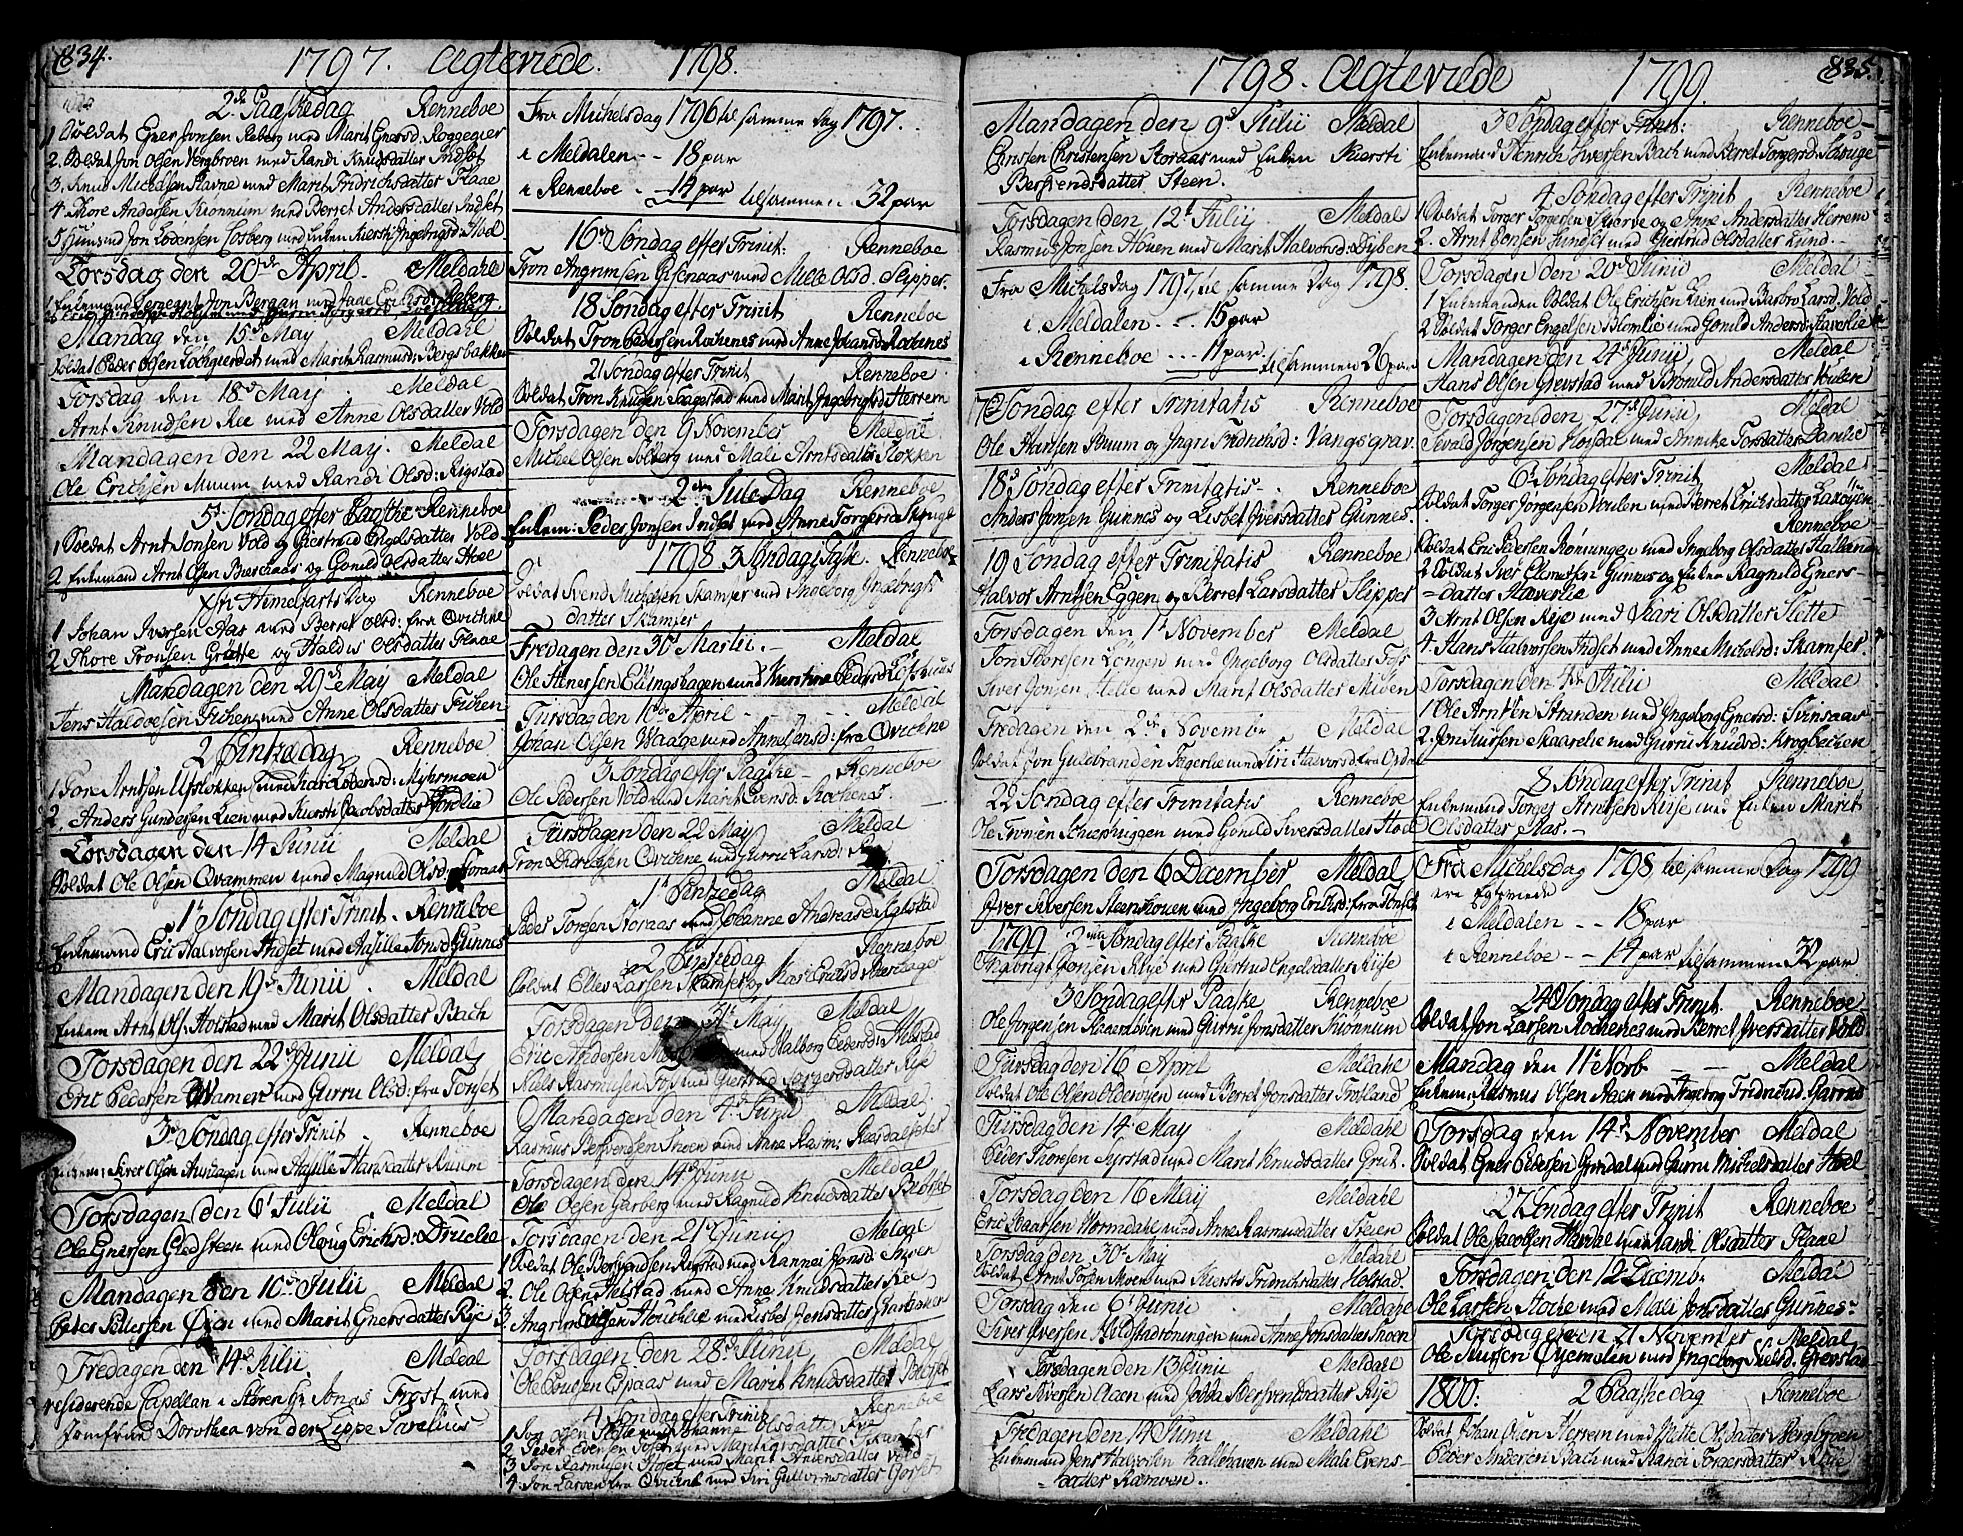 834.
1797. Ægteviede. 1798.
2de Paaskedag Renneboe
1 Soldat Ener Jonsen Reberg med Marit Enersd. Roggegier
2. Soldat Jon Olsen Vergbroen med Randi Knudsdatter Indset
3. Knud Michelsen Flavne med Marit Fridrichsdatter Flaae
4. Thore Andersen Kiønnum med Berret Andersdatter Indset
5. Jon Lodensen Losberg med Enken Kiersti Ingebrigtsd: Hoel
Torsdag den 20de April. Meldahl
1 Enkemand Jon Bergan med Erichsd.
Mandag den 15de May Meldahl
Soldat Peder Olsen med Marit Rasmusd: Bergsbakken
Torsdag den 18de Maij Meldal
Arnt Knudsen Ree med Anne Olsdatter Vold
Mandagen den 22 May. Meldal
Ole Erichsen Muum med Randi Olsd: Rigstad
5te Søndag efter Paaske Renneboe
1 Soldat Arnt Jonsen Vold og Giertrud Engelsdatter Vold
2 Enkemand Arnt Olsen og Gonild Olsdatter Hoel
Xsti Himelfarts Dag Renneboe
1 Johan Iversen Aas med Berret Olsd: fra Qvichne
2 Thore Tronsen Grøtte og Haldis Olsdatter Flaae
Mandagen den 29de May Meldal
Jens Haldoesen Fichen med Anne Olsdatter Fichen
2 Pintzedag Renneboe
1 Tore Arntsen Ufslokken med Kari Lodensd: Nyhrmoen
2. Anders Gundersen Lien med Kiersti Jacobsdatter
Torsdagen den 14 Junii Meldal
Soldat Ole Olsen Qvammen med Magnild Olsd: Foraa
1te Søndag efter Trinit. Renneboe
Enkemand Eric Halvorsen Indset med Aasille Jonsd: Gunnes
Mandagen den 19de Junii. Meldal
Enkem Arnt Ols: Horstad med Marit Olsdatter Bach
Torsdagen den 22de Junii Meldal
Eric Pedersen med Gurru Olsd: fra Forset
3de Søndag efter Trinit. Renneboe
Enkem: Iver Olsen med Aasille Hansdatter
Torsdagen den 6te Julii Meldal
Ole Enersen Gledsteen med Oloug Erichsd: Druelie
Mandagen den 10de Julii Meldal
Peder Pedersen Øien med Marit Enersdatter Rye
Fredagen den 14de Julii Meldal
residerende Capellan i Støren Hr Jonas Frost med
Jomfrue Dorothea von der Lippe Parelius
Fra Michelsdag 1796 til samme dag 1797.
i Meldalen - - 18 par
i Renneboe - - 14 par tilsammen .. 32 par
16de Søndag efter Trinit: Renneboe
Tron Angrimsen Gisenaas med Mille Olsd. Slipper.
18 Søndag efter Trinit Renneboe
Soldat Tron Pedersen Rochenes med Anne Johansd: Rochenes
21 Søndag efter Trinit Renneboe
Soldat Tron Knudsen Haagestad med Marit Ingebrigtsd: Herrem
Torsdagen den 9 November Meldal
Michel Olsen Solberg med Mali Arntsdatter Hokken
2den Jule Dag Renneboe
Enkem: Peder Jonsen Indset med Anne Torgersd: Skougl
1798 3 Søndag i Faste. Renneboe
Soldat Svend Michelsen Skamfer med Ingeborg Ingebrigts
datter Skamfer
Fredagen den 30te Martii. Meldal
Ole Stenersen Ellingshagen med Kiersthine Pedersd.
Tirsdag den 10de April Meldal
Johan Olsen Waage med Anne Jensd: fra Qvichne
3 Søndag efter Paaske Renneboe
Ole Pedersen Vold med Marit Evensd: Rochenes
Tirsdagen den 22 May Meldal
Tron Qvichne med Gurru Larsd:
1te Pintzedag Meldal
Peder Torgersen Storaas med Johanne Andreasd: Rigstad
2 Pintzedag Renneboe
Soldat Elles Larsen Skamfer og Kari Endresd:
Torsdagen den 31te May Meldal
Eric Andersen med Valborg Pedersd:
Niels Rasmusen Fos med Giertrud Torgersdatter Rye
Mandagen den 4de Junii Meldal
Rasmus Berfvendsen Skoen med Anne Rasm:
Torsdagen den 14de Junii Meldal
Ole Olsen Garberg med Ragnild Knudsdatter
Torsdagen den 21de Junii Meldal
1 Soldat Ole Berfvendsen Rigstad med Hannes Jonsd:
2. Ole Olsen Melstad med Anne Knudsdatter Ree
3. Angrim Ericsen Houchlie med Lisbet Jensdatter
Torsdagen den 28de Junii Meldal
Ole Poulsen Espaas med Marit Knudsdatter
4 Søndag efter Trinit Renneboe
1 Jon Olsen med Johanne Olsdatter
2 Peder Evensen med Marit datter Skamfer
3 Jon Rasmusen Hoset med Marit Andersdatter Vold
4. Jon Larsen fra Qvichne med Siri Gullvornsdatter Gorset
1798. Ægteviede 1799. 835.
Mandagen den 9de Julii Meldal
Christen Christensen Storaas med Enken Kiersti
Berfvendsdatter Steen.
Torsdagen den 12te Julii Meldal
Rasmus Jonsen Houen med Marit Halvorsd: Dyben
Fra Michelsdag 1797 til samme Dag 1798.
i Meldalen - - - 15 par
i Renneboe - - - 11 par tilsammen 26 par
17de Søndag efter Trinitatis Renneboe
Ole Hansen Stuum og Ingri Fridrichsd: Vangsgrav.
18de Søndag efter Trinitatis Renneboe
Anders Jonsen Gunnes og Lisbet Iversdatter Gunnes.
19 Søndag efter Trinitatis Renneboe
Halvor Arntsen Eggen og Berret Larsdatter Slipper
Torsdagen den 1te November Meldal
Jon Thoresen Løngen med Ingeborg Olsdatter Foss
Siver Jonsen Helie med Marit Olsdatter Moen
Fredagen den 2de November Meldal
Soldat Jon Guldbrandsen Fagerlie med Siri Halvorsd fra Opda
22 Søndag efter Trinitatis Renneboe
Ole Tronsen med Gonild Siversdatter Hoel
Torsdagen den 6 December Meldal
Iver Siversen Steenhouen med Ingeborg Erichsd: fra Forset
1799 2den Søndag efter Paaske Renneboe
Ingbrigt Jonsen Rise med Giertrud Engelsdatter Rise
3 Søndag efter Paaske Renneboe
Ole Jørgensen med Gurru Jonsdatter Kiønnum
Tirsdag den 16 April Meldahl
Soldat Ole Olsen Olderøien med Berret Jonsdatter Trotland
Tirsdag den 14 May Meldahl
Peder Thoresen Syrstad med Marit Knudsdatter Grut.
Torsdag den 16 May Meldahl
Eric Baartsen Wormdahl med Anne Rasmusdatter Steien
Torsdag den 30te May Meldahl
Soldat Arnt Torsen Moen med Kiersti Fridrichsdatter Holstad.
Torsdag den 6te Junii Meldahl
Siver Iversen Hildstadrøningen med Anne Jonsdatter Skoen
Torsdagen den 13 Junii Meldahl
Lars Iversen Aaen med Jodda Berfvendsdatter Rye
Fredagen den 14 Junii Meldahl
Enkemand Jens Halvorsen Kalstehaven med Mali Evens-
datter Ramoen.
3 Søndag efter Trinit: Renneboe
Enkemand Henrich Iversen Bach med Berret Torgersd: Schouge
4 Søndag efter Trinit Renneboe
1 Soldat Torger Torgersen Skierve og Anne Andersdatter Herrem
2. Arnt Jonsen Lundset med Giertrud Olsdatter Lund
Torsdagen den 20de Junii Meldal
1 Enkemanden Soldat Ole Erichsen Lien med Barbro Larsd. Vold
2 Soldat Torger Engelsen Blomlie med Gonild Andersd: Haverlie
Mandagen den 24de Junii Meldal
Hans Olsen Grevstad med Bronild Andersdatter Voulen
Torsdagen den 27de Junii Meldal
Sevald Jørgensen Hosdal med Annike Torsdatter Barelie
6te Søndag efter Trinit Meldal
Soldat Torger Jørgensen Voulen med Berret Erichsdatter Laxøyen
Renneboe
Soldat Eric Pedersen Rønningen med Ingeborg Olsdatter Halland
2 Soldat Iver Clemetsen Gunnes og Enken Ragnild Eners-
datter Haverlie
3 Arnt Olsen Rise med Kari Olsdatter Slette
4. Hans Halvorsen Indset med Anne Michelsd: Skamfer.
Torsdagen den 4de Julii Meldal
1 Ole Arntsen Stranden med Ingeborg Enersd: Svinsaas
2. Jon Siursen Skaarelie med Gurru Knudsd: Krogbechen
8 Søndag efter Trinit Renneboe
Enkemand Torger Arntsen Rise med Enken Marit
Olsdatter Aas.
Fra Michelsdag 1798 til samme Dag 1799
ere Egteviede
i Meldalen - - 18 par
i Renneboe - - 14 par tilsammen 32 par
24de Søndag efter Trinit. Renneboe
Soldat Jon Larsen Rochenes med Berret Iversdatter Vold
Mandag den 11te Novb Meldal
Enkem: Rasmus Olsen Aaen med Ingeborg Fridrichsd. Garnes
Torsdag den 14de November Meldal
Soldat Ener Pedersen Grindal med Gurru Michelsdatter Hoel
27 Søndag efter Trinit Renneboe
Soldat Ole Jacobsen Havdal med Randi Olsdatter Flaae
Torsdagen den 12 Decemb. Meldal
Ole Larsen Stoche med Mali Jonsdatter Gunnes
Torsdagen den 21 November Meldal
Ole Siursen Øyemslin med Ingeborg Siursd. Grevstad
1800: 2 Paaske dag Renneboe
Soldat Johan Olsen Herrem med Olsdatter Bergbroen
Peder Andersen Bach med Randi Torgersdatter Rise